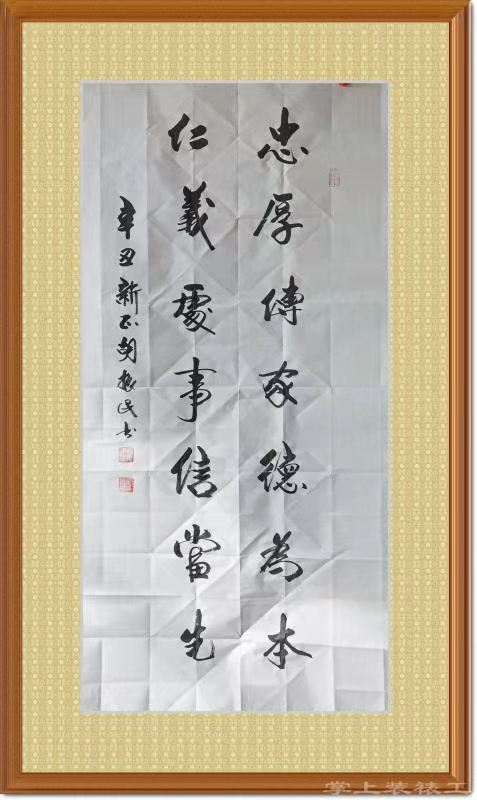 忠厚傳家德為本
仁義處事信當先
辛丑新正胡振民书
掌上装裱工